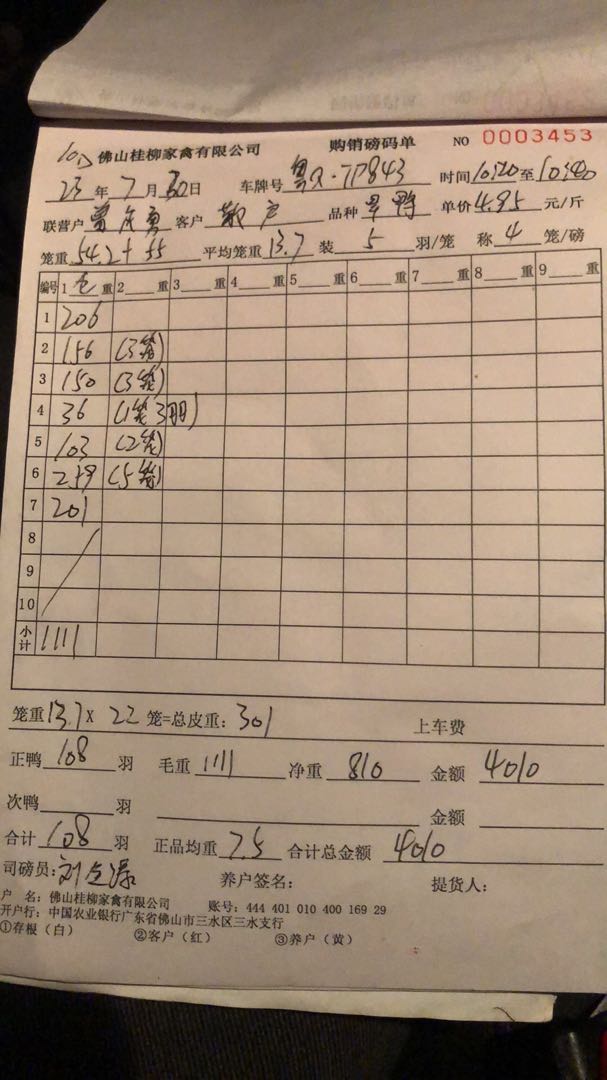 佛山桂柳家禽有限公司 购销磅码单 NO 0003453
23年7月30日 车牌号 粤Q·7P843 时间10:20至10:40
联营户 客户 散户 品种 旱鸭 单价4.95元/斤
笼重54.2+55 平均笼重13.7 装5羽/笼 称4笼/磅
编号 1 毛 重 2 重 3 重 4 重 5 重 6 重 7 重 8 重 9 重
1 206
2 156 (3笼)
3 150 (3笼)
4 36 (1笼3羽)
5 103 (2笼)
6 259 (5笼)
7 201
8
9
10
小计 1111
笼重13.7X22笼=总皮重:301 上车费
正鸭108羽 毛重1111 净重810 金额4010
次鸭 羽 金额
合计108羽 正品均重7.5 合计总金额4010
司磅员: 养户签名: 提货人:
户 名:佛山桂柳家禽有限公司 账号:444 401 010 400 169 29
开户行:中国农业银行广东省佛山市三水区三水支行
①存根(白) ②客户(红) ③养户(黄)